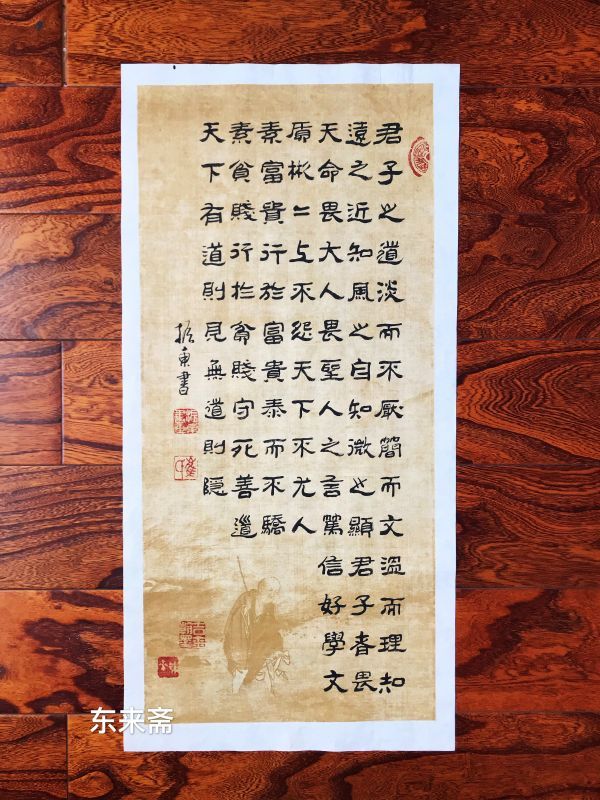 君子之道淡而不厭簡而文溫而理知
遠之近知風之自知微之顯君子者畏
天命畏大人畏聖人之言篤信好學文
質彬〻上不怨天下不尤人
素富貴行於富貴泰而不驕
素貧賤行於貧賤守死善道
天下有道則見無道則隱
振東書
东来斋